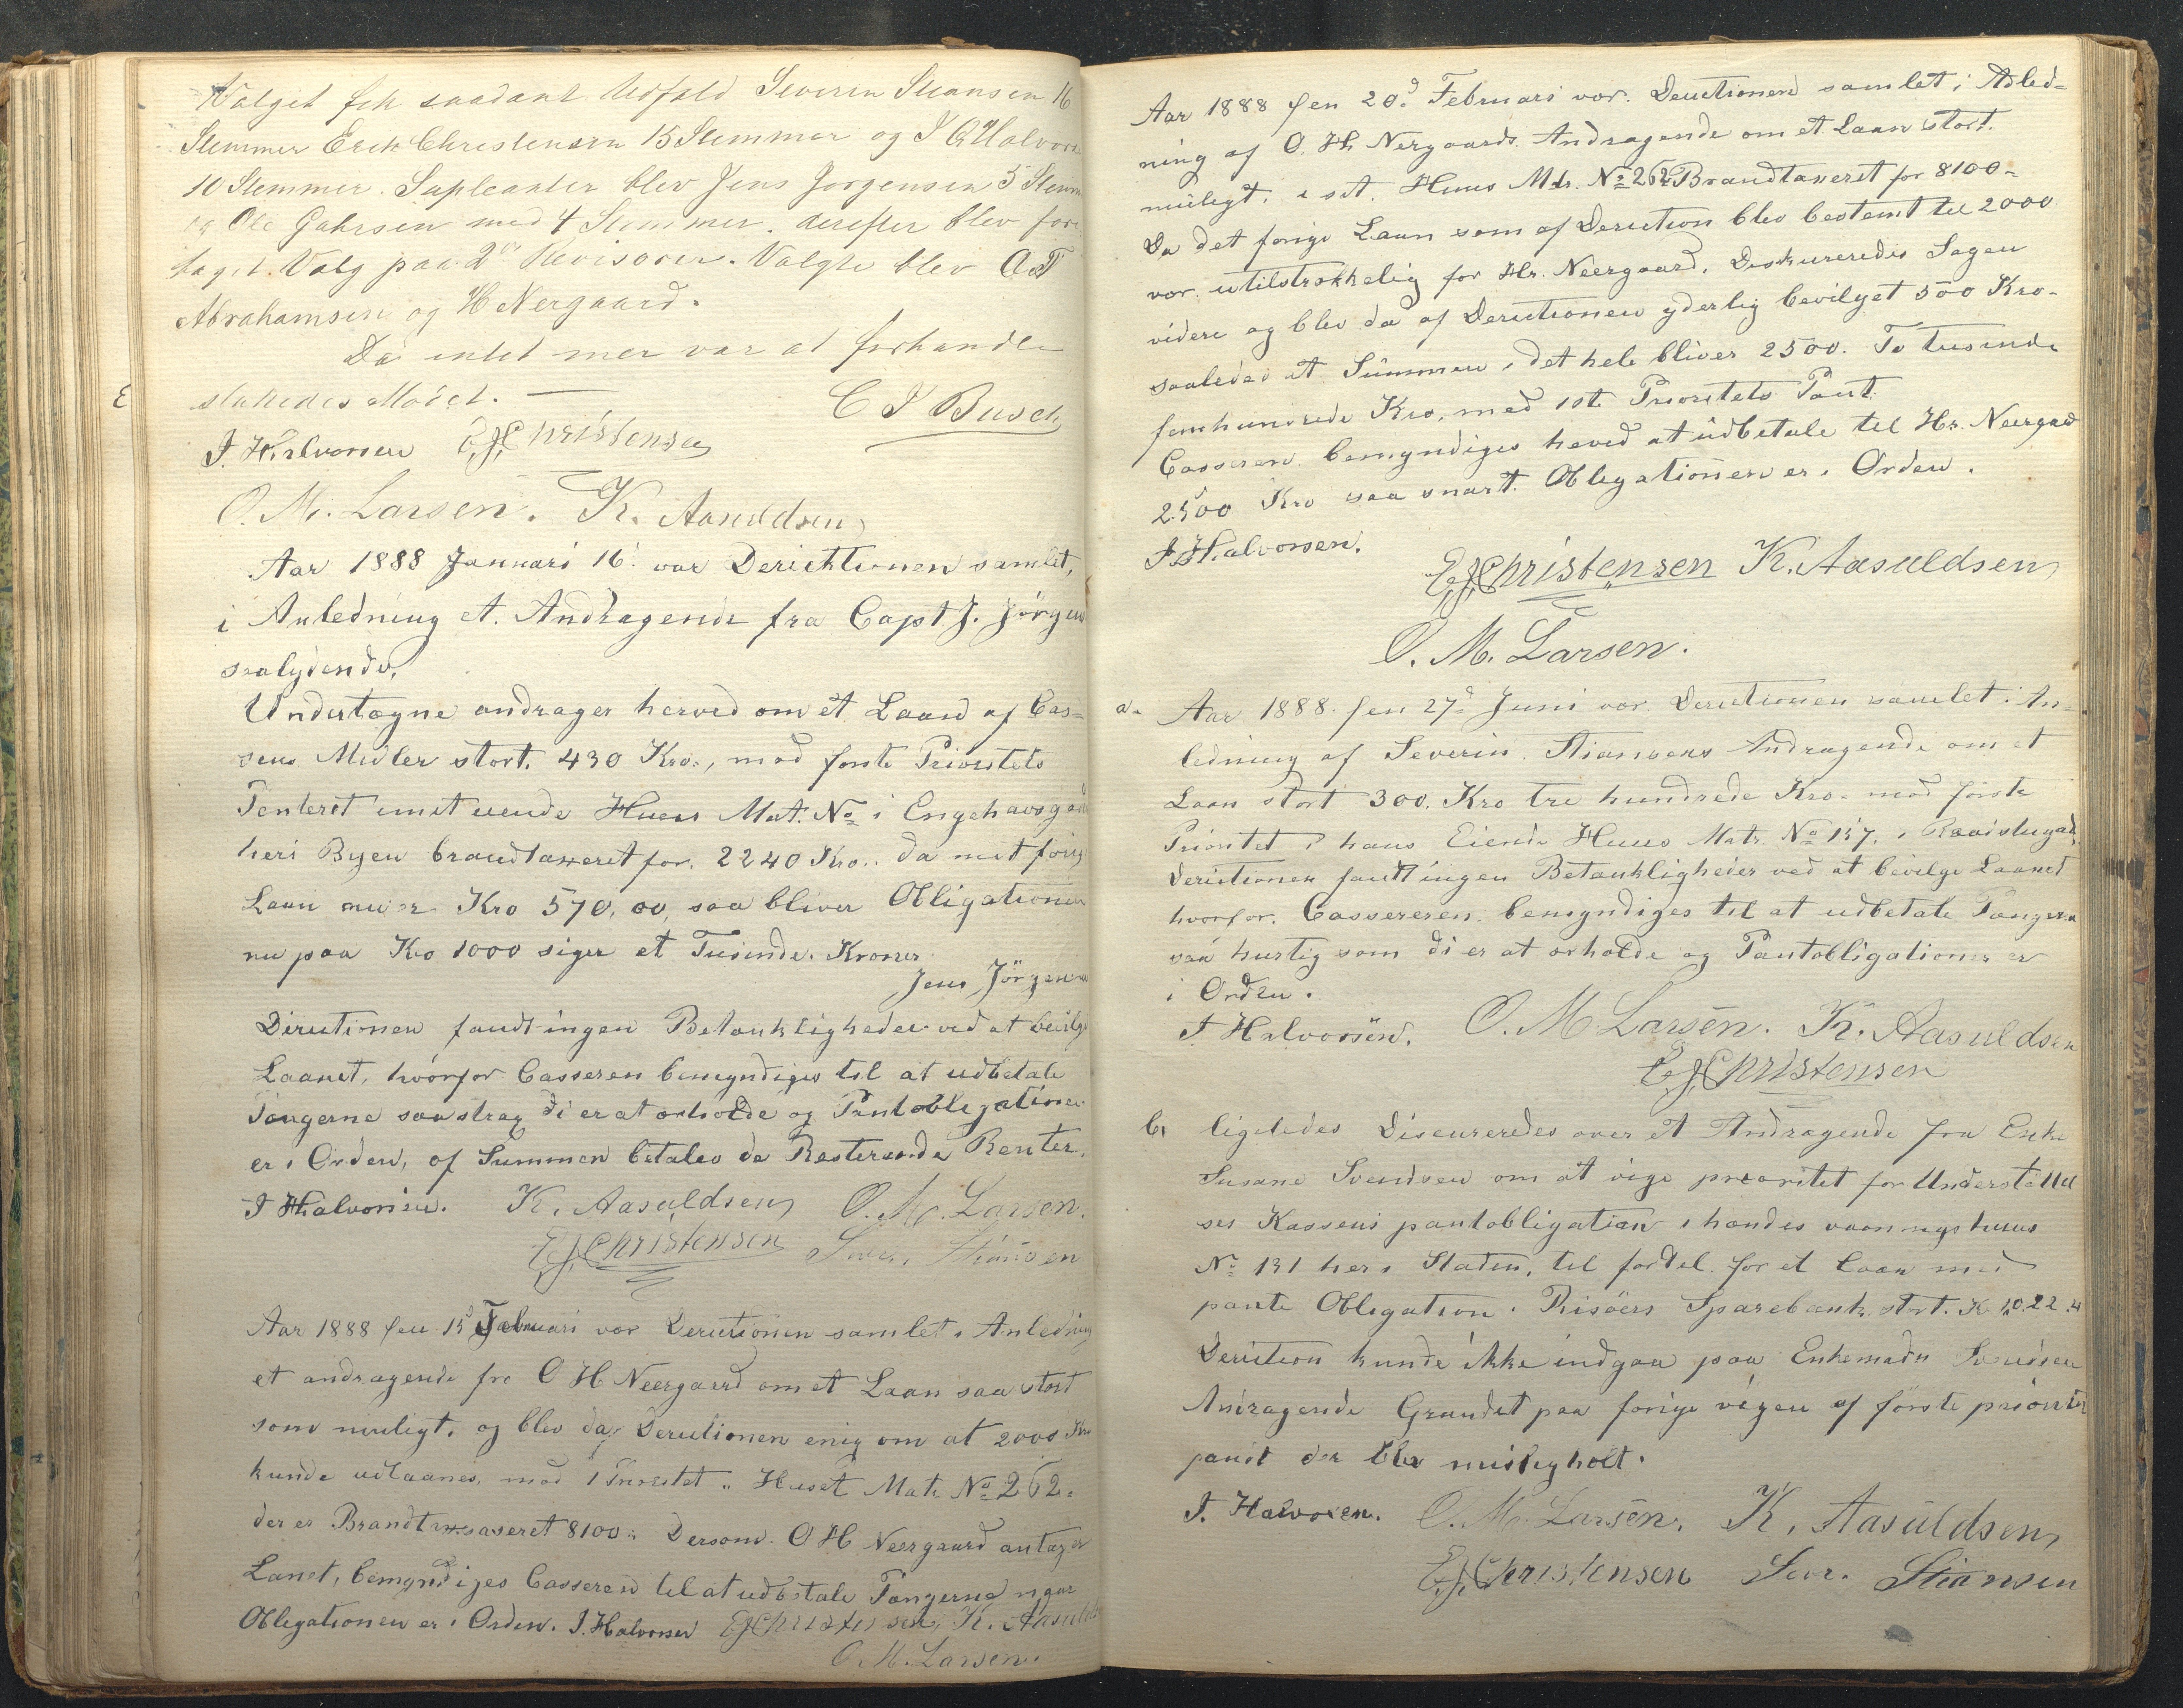 Valget fik saadant Udfald Severin Stiansen 16
Stemmer Erik Christensen 15 Stemmer og J Halvors
10 Stemmer. Supleanter blev Jens Jorgensen 5 Stem
og Ole Gahrsen med 4 Stemmer. derefter blev fore
taget Valg paa 2de Revisorer. Valgte blev O T
Abrahamsen og H Nergaard.
Da intet mer var at forhandle
sluttedes Mödet. —
C J Busch
J. Halvorsen E J Christensen
O. M. Larsen. K. Aasuldsen
Aar 1888 Januari 16. var Derichtionen samlet,
i Anledning et. Andragende fra Capt. J. Jörgen
saalydende,
Undertegne andrager herved om et Laan af Cas=
sens Midler stort. 430 Kro., mod förste Prioritets
Penteret i mit eiende Huus Mat. No i Engehavsgad
heri Byen brandtaxeret for. 2240 Kro.. da mit forig
Laan nu er Kro 570,00, saa bliver Obligationen
nu paa Kro 1000 siger et Tusinde. Kroner
Jens Jörgensen
Dirutionen fandt ingen Betænkligheder ved at bevilge
Laanet, hvorfor Casseren bemyndiges til at udbetale
Pengerne saa strax di er at erholde og Pantobligationen
er i Orden, af Summen betales de Resterende Renter.
J Halvorsen. K. Aasuldsen O. M. Larsen.
E J Christensen Sevr. Stiansen
Aar 1888 den 15d Februari var Derutionen samlet i Anledning
et andragende fra O H Neergaard om et Laan saa stort
som muligt, og blev da Derutionen enig om at 2000 Kro
kunde udlaanes, mod 1 Prioritet i Huset Matr No 262.
der er Brandtaxsaseret 8100.. Dersom. O H Neergaard antager
Lanet, bemyndiges Casseren til at udbetale Pangerne naar
Obligationen er i Orden. J. Halvorsen E J Christensen K. Aasulds
O. M. Larsen.
Aar 1888 den 20d Februari var. Derutionen samlet i Adled=
ning af O. H. Nergaards Andragende om et Laan stort.
muligt. i sit. Huus Mdr. No 262 Brandtaxeret for 8100=
Da det forige Laan som af Derution blev bestemt til 2000
var. utilstrækkelig for Hr. Neergaard. Diskureredes Sagen
videre og blev da af Derutionen yderlig bevilget 500 Kro.
saaledes at Summen i det hele bliver 2500. To tusinde
femhundrede Kro, mod 1ste Prioritets Pant
Casseren. bemyndiges heved at udbetale til Hr. Neergard
2500 Kro saa snart. Obligationen er i Orden.
J Halvorsen.
E J Christensen K. Aasuldsen
O. M. Larsen.
a. Aar 1888. den 27d Juni var Derutionen samlet i An=
ledning af Severin. Stiansens Andragende om et
Laan stort 300. Kro tre hundrede Kro. mod förste
Prioritet i hans Eiende Huus Matr. No 157. i
Derictionen fandt ingen Betænkligheder ved at bevilge Laanet
hvorfor. Cassereren. bemyndiges til at udbetale Pangerne
saa hurtig som di er at erholde og Pantobligationen er
i Orden.
J Halvorsen. O. M Larsen. K. Aasuldsen
E J Christensen
b. ligeledes Discureredes over et Andragende fra Enke
Susane Svendsen om at vige preoritet for Understöttel
ses Kassens pantobligation i hendes vaaningshuus
No 131 her i Staden, til fordel for et Laan med
pante Obligation i Risöers Sparebank stort. K 1022.
Derition kunde ikke indgaa paa Enkemadm Svendsen
Andragende Grundet paa forige vigen af förste priorite
pandt der blev misligholt.
J. Halvorsen. O. M. Larsen. K. Aasuldsen
E J Christensen Sevr. Stiansen